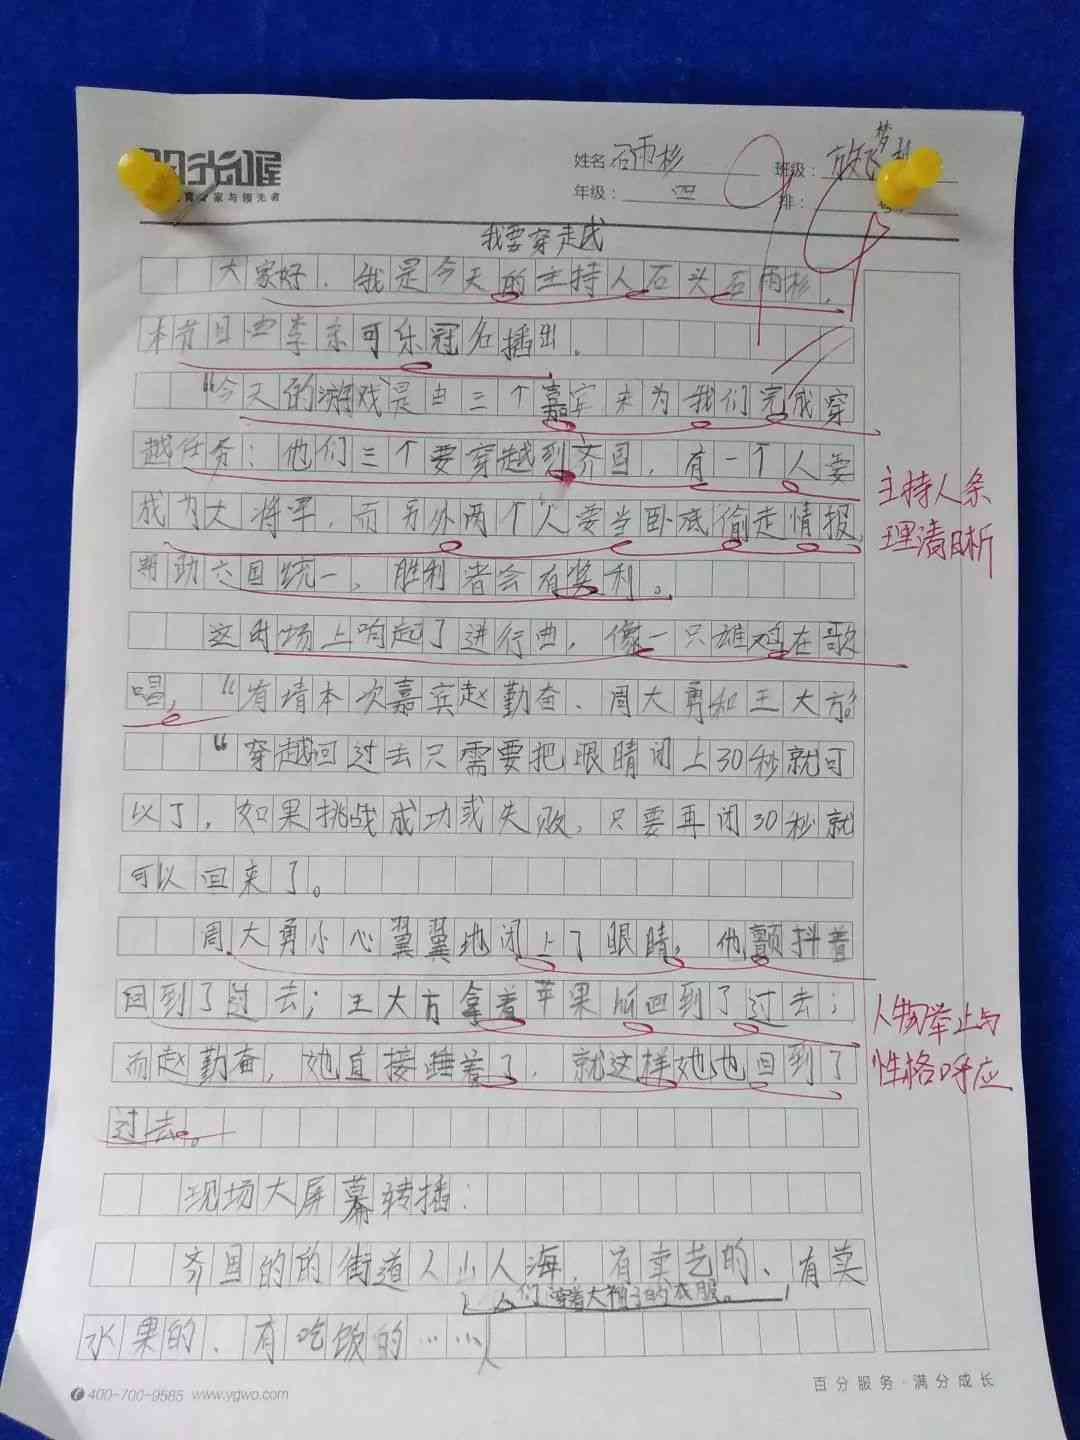 阳光喔
姓名 石雨杉 班级： 放飞梦想
年级： 四 排：
我要穿走戉
大家好，我是今天的主持人石头石雨杉，
本节目由李东可乐冠名播出。
“今天的游戏是由三个嘉宾来为我们完成穿
越任务：他们三个要穿越到齐国，有一个人要
成为大将军，而另外两个人要当卧底偷走情报，
帮助六国统一，胜利者会有奖利。
主持人条
理清晰
这时场上响起了进行曲，像一只雄鸡在歌
唱，“有请本次嘉宾赵勤奋、周大勇和王大方”
“穿越回过去只需要把眼睛闭上30秒就可
以了，如果挑战成功或失败，只要再闭30秒就
可以回来了。
周大勇小心翼翼地闭上了眼睛，他颤抖着
回到了过去；王大方拿着苹果所回到了过去；
而赵勤奋，她直接睡着了，就这样她也回到了
过去。
人物举止与
性格呼应
现场大屏幕转播：
齐国的的街道人山人海，有卖艺的、有卖
人们穿着大袖子的衣服。
水果的、有吃饭的……
400-700-9585 www.ygwo.com
百分服务·满分成长